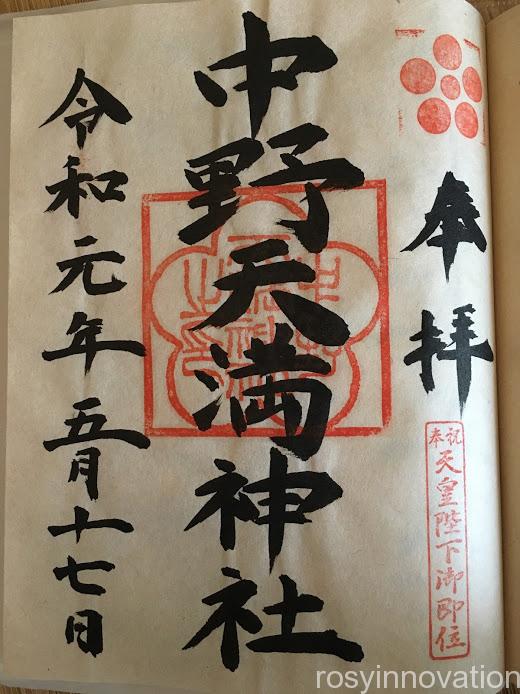 奉拝
奉祝
天皇陛下御即位
中野天満神社
令和元年五月十七日
rosyinnovation